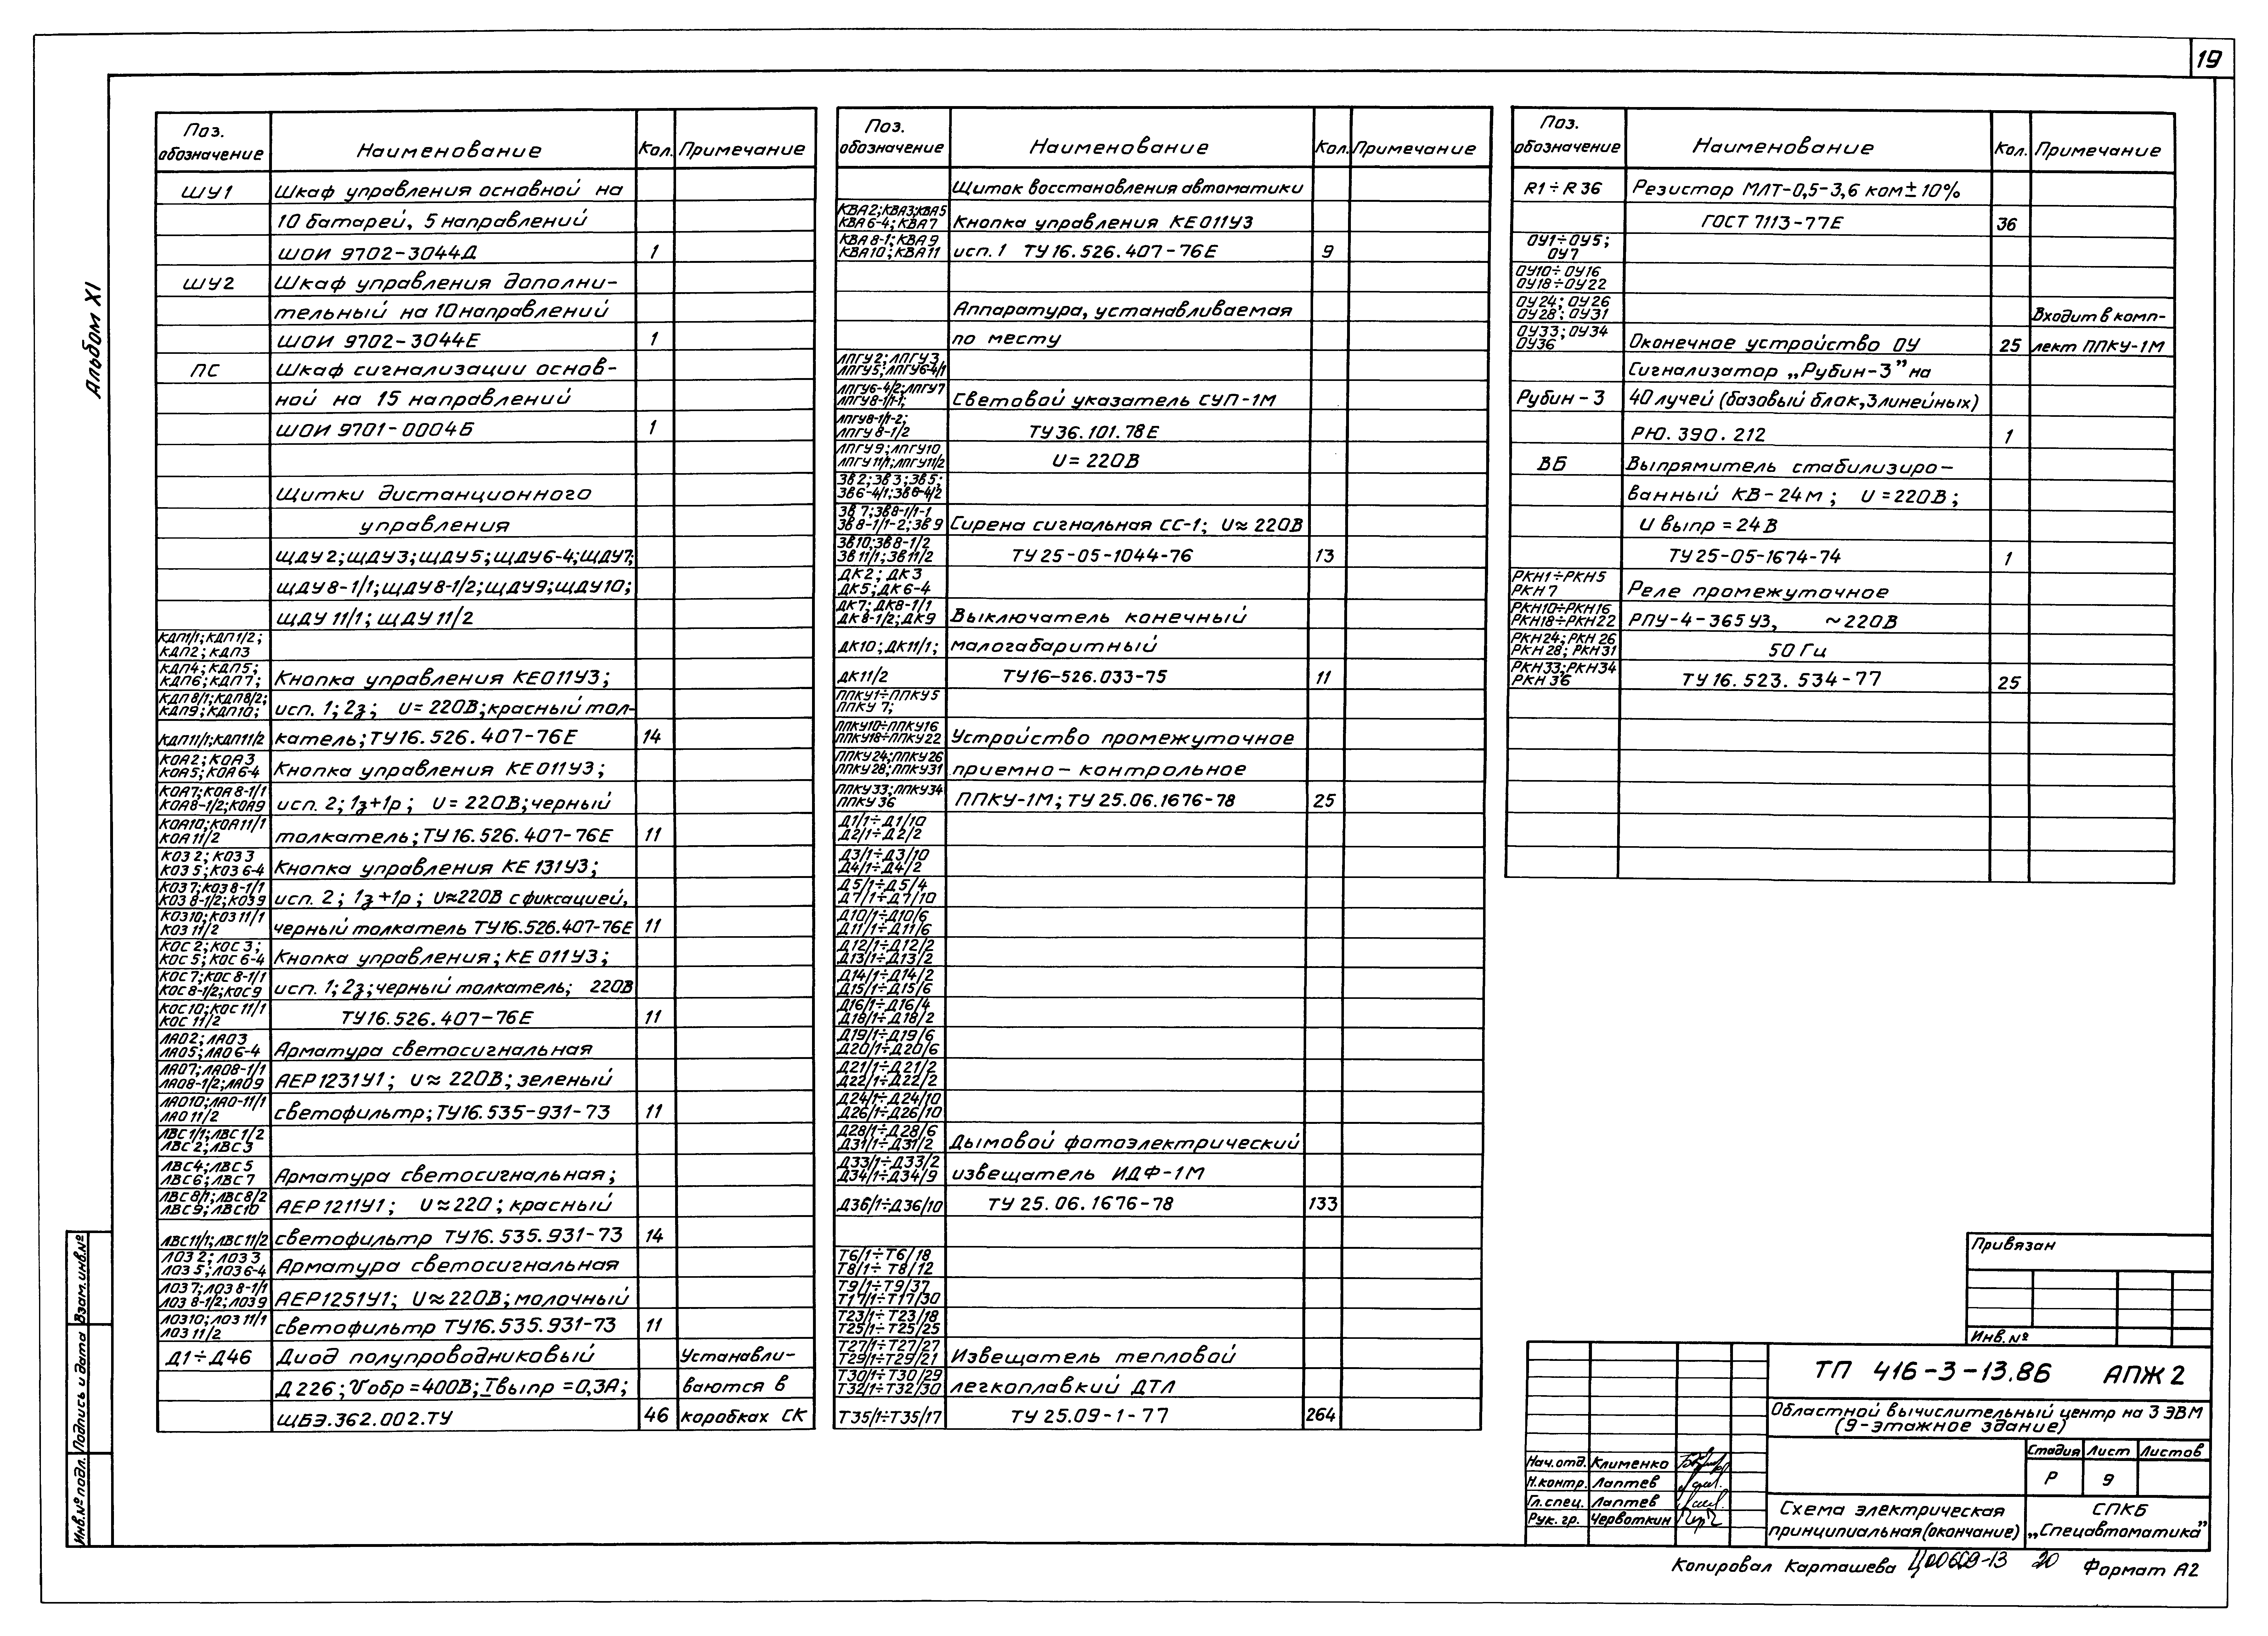 19
Альбом XI
Поз. обозначение Наименование Кол. Примечание
ШУ1 Шкаф управления основной на
10 батарей, 5 направлений
ШОИ 9702-3044Д 1
ШУ2 Шкаф управления дополни-
тельный на 10 направлений
ШОИ 9702-3044Е 1
ПС Шкаф сигнализации основ-
ной на 15 направлений
ШОИ 9701-0004Б 1
Щитки дистанционного
управления
ЩДУ2; ЩДУ3; ЩДУ5; ЩДУ6-4; ЩДУ7;
ЩДУ8-1/1; ЩДУ8-1/2; ЩДУ9; ЩДУ10;
ЩДУ 11/1; ЩДУ 11/2
КДП1/1; КДП1/2;
КДП2; КДП3
КДП4; КДП5;
КДП6; КДП7; Кнопка управления КЕ011У3;
КДП8/1; КДП8/2;
КДП9; КДП10; исп. 1; 2з; U=220В; красный тол-
КДП11/1; КДП11/2 катель; ТУ16.526.407-76Е 14
КОА2; КОА3
КОА5; КОА6-4 Кнопка управления КЕ011У3;
КОА7; КОА8-1/1
КОА8-1/2; КОА9 исп. 2; 1з+1р; U=220В; черный
КОА10; КОА11/1
КОА11/2 толкатель; ТУ16.526.407-76Е 11
КОЗ2; КОЗ3
КОЗ5; КОЗ6-4 Кнопка управления КЕ 131У3;
КОЗ7; КОЗ8-1/1
КОЗ8-1/2; КОЗ9 исп. 2; 1з+1р; U≈220В с фиксацией,
КОЗ10; КОЗ11/1
КОЗ11/2 черный толкатель ТУ16.526.407-76Е 11
КОС2; КОС3;
КОС5; КОС6-4 Кнопка управления; КЕ 011У3;
КОС7; КОС8-1/1
КОС8-1/2; КОС9 исп. 1; 2з; черный толкатель; 220В
КОС10; КОС11/1
КОС11/2 ТУ16.526.407-76Е 11
ЛАО2; ЛАО3
ЛАО5; ЛАО6-4 Арматура светосигнальная
ЛАО7; ЛАО8-1/1
ЛАО8-1/2; ЛАО9 АЕР1231У1; U≈220В; зеленый
ЛАО10; ЛАО-11/1
ЛАО11/2 светофильтр; ТУ16.535-931-73 11
ЛВС1/1; ЛВС1/2
ЛВС2; ЛВС3
ЛВС4; ЛВС5
ЛВС6; ЛВС7 Арматура светосигнальная;
ЛВС8/1; ЛВС8/2
ЛВС9; ЛВС10 АЕР1211У1; U≈220; красный
ЛВС11/1; ЛВС11/2 светофильтр ТУ16.535.931-73 14
ЛОЗ2; ЛОЗ3
ЛОЗ5; ЛОЗ6-4 Арматура светосигнальная
ЛОЗ7; ЛОЗ8-1/1
ЛОЗ8-1/2; ЛОЗ9 АЕР1251У1; U≈220В; молочный
ЛОЗ10; ЛОЗ11/1
ЛОЗ11/2 светофильтр ТУ16.535.931-73 11
Д1÷Д46 Диод полупроводниковый Устанавли-
Д226; Vобр=400В; Iвыпр=0,3А; ваются в
ЩБЭ.362.002.ТУ 46 коробках СК
Поз. обозначение Наименование Кол. Примечание
Щиток восстановления автоматики
КВА2; КВА3; КВА5
КВА6-4; КВА7 Кнопка управления КЕ011У3
КВА8-1; КВА9
КВА10; КВА11 исп.1 ТУ16.526.407-76Е 9
Аппаратура, устанавливаемая
по месту
ЛПГУ2; ЛПГУ3
ЛПГУ5; ЛПГУ6-4/1
ЛПГУ6-4/2; ЛПГУ7
ЛПГУ8-1/1-1; Световой указатель СУП-1М
ЛПГУ8-1/1-2;
ЛПГУ8-1/2 ТУ36.101.78Е
ЛПГУ9; ЛПГУ10
ЛПГУ11/1; ЛПГУ11/2 U=220В
Зв2; Зв3; Зв5;
Зв6-4/1; Зв6-4/2
Зв7; Зв8-1/1-1
Зв8-1/1-2; Зв9 Сирена сигнальная СС-1; U≈220В
Зв10; Зв8-1/2
Зв11/1; Зв11/2 ТУ25-05-1044-76 13
ДК2; ДК3
ДК5; ДК6-4
ДК7; ДК8-1/1
ДК8-1/2; ДК9 Выключатель конечный
ДК10; ДК11/1; малогабаритный
ДК11/2 ТУ16-526.033-75 11
ППКУ1÷ППКУ5
ППКУ7;
ППКУ10÷ППКУ16
ППКУ18÷ППКУ22 Устройство промежуточное
ППКУ24; ППКУ26
ППКУ28; ППКУ31 приемно-контрольное
ППКУ33; ППКУ34
ППКУ36 ППКУ-1М; ТУ 25.06.1676-78 25
Д1/1÷Д1/10
Д2/1÷Д2/2
Д3/1÷Д3/10
Д4/1÷Д4/2
Д5/1÷Д5/4
Д7/1÷Д7/10
Д10/1÷Д10/6
Д11/1÷Д11/6
Д12/1÷Д12/2
Д13/1÷Д13/2
Д14/1÷Д14/2
Д15/1÷Д15/6
Д16/1÷Д16/4
Д18/1÷Д18/2
Д19/1÷Д19/6
Д20/1÷Д20/6
Д21/1÷Д21/2
Д22/1÷Д22/2
Д24/1÷Д24/10
Д26/1÷Д26/10
Д28/1÷Д28/6
Д31/1÷Д31/2 Дымовой фотоэлектрический
Д33/1÷Д33/2
Д34/1÷Д34/9 извещатель ИДФ-1М
Д36/1÷Д36/10 ТУ 25.06.1676-78 133
Т6/1÷Т6/18
Т8/1÷Т8/12
Т9/1÷Т9/37
Т17/1÷Т17/30
Т23/1÷Т23/18
Т25/1÷Т25/25
Т27/1÷Т27/27
Т29/1÷Т29/21 Извещатель тепловой
Т30/1÷Т30/29
Т32/1÷Т32/30 легкоплавкий ДТЛ
Т35/1÷Т35/17 ТУ 25.09-1-77 264
Поз. обозначение Наименование Кол. Примечание
R1÷R36 Резистор МЛТ-0,5-3,6 ком±10%
ГОСТ 7113-77Е 36
ОУ1÷ОУ5;
ОУ7
ОУ10÷ОУ16
ОУ18÷ОУ22
ОУ24; ОУ26
ОУ28; ОУ31 Входит в комп-
ОУ33; ОУ34
ОУ36 Оконечное устройство ОУ 25 лект ППКУ-1М
Сигнализатор „Рубин-3” на
Рубин-3 40 лучей (базовый блок, 3 линейных)
РЮ.390.212 1
ВБ Выпрямитель стабилизиро-
ванный КВ-24м; U=220В;
U выпр=24В
ТУ25-05-1674-74 1
РКН1÷РКН5
РКН7 Реле промежуточное
РКН10÷РКН16
РКН18÷РКН22 РПУ-4-365У3, ~220В
РКН24; РКН26
РКН28; РКН31 50 Гц
РКН33; РКН34
РКН36 ТУ16.523.534-77 25
Привязан
Инв.№
ТП 416-3-13.86 АПЖ2
Областной вычислительный центр на 3 ЭВМ
(9-этажное здание)
Стадия Лист Листов
Р 9
Нач.отд. Клименко
Н.контр. Лаптев
Гл.спец. Лаптев
Рук.гр. Червоткин
Схема электрическая
принципиальная (окончание)
СПКБ
„Спецавтоматика”
Копировал Карташева Ц00669-13 20 Формат А2
Инв.№ подл. Подпись и дата Взам.инв.№